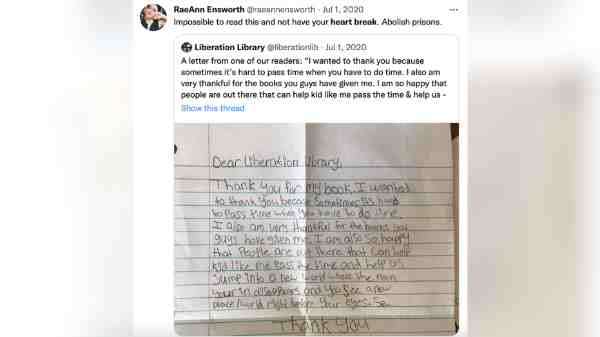 RaeAnn Ensworth @raeannensworth · Jul 1, 2020
Impossible to read this and not have your heart break. Abolish prisons.
Liberation Library @liberationlib · Jul 1, 2020
A letter from one of our readers: "I wanted to thank you because
sometimes it's hard to pass time when you have to do time. I also am
very thankful for the books you guys have given me. I am so happy that
people are out there that can help kid like me pass the time & help us -
Show this thread
Dear Liberation Library,
Thank you for my book. I wanted
to thank you becase sometimes it's hard
to pass time when you have to do time.
I also am very thankful for the books you
guys have given me. I am also so happy
that People are out there that can help
kid like me Pass the time and help us
Jump into a new world where the
in disappears and you see a new
place/world right before your eyes. So
Thank You